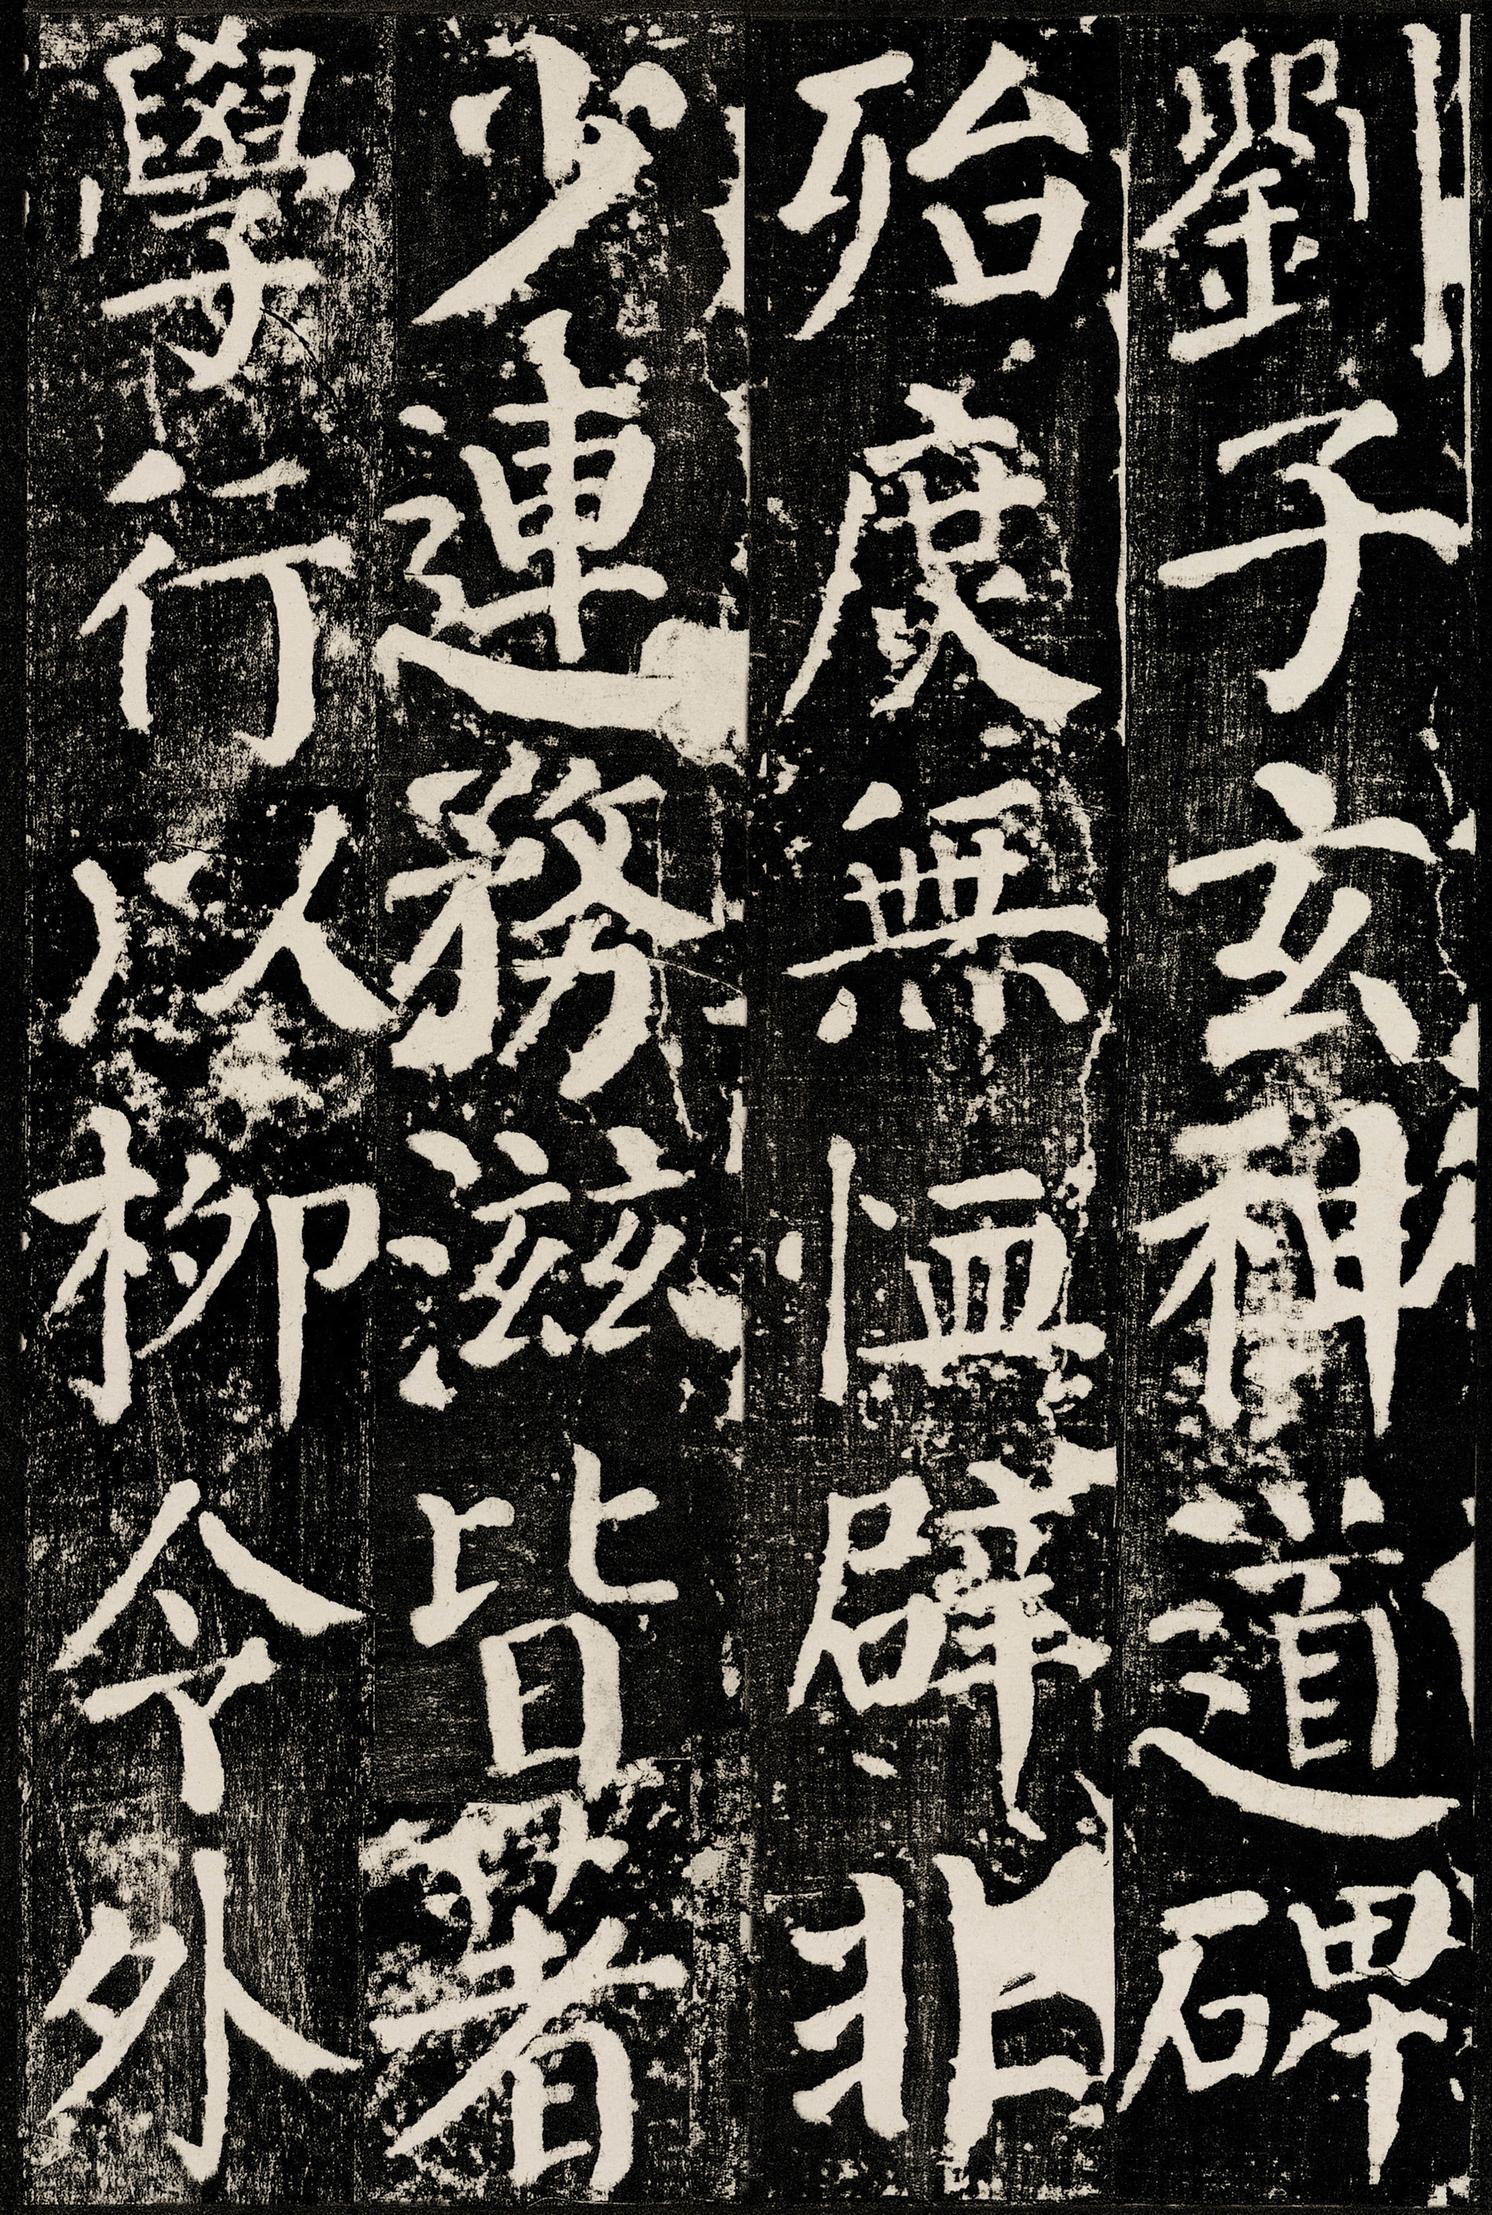 劉子玄神道碑
殆度無恤辟非
少連務滋皆著
學行以柳令外